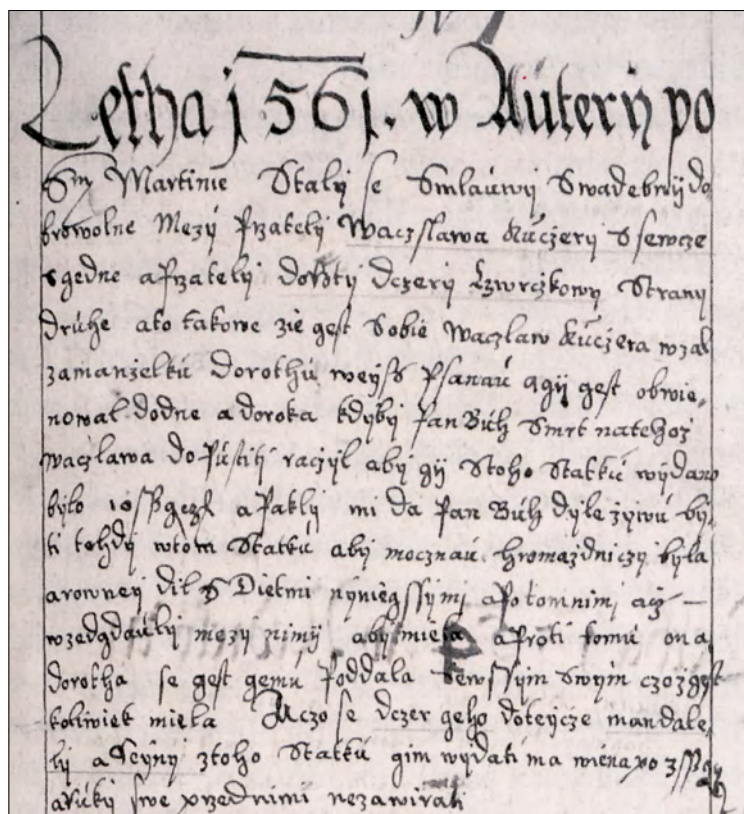 Letha j561. w Auterý po
Sm Martinie Stalý se Smlauwý Swadebný do
browolne Mezý Przatelý Waczslawa Kuczerý Ssewcze
s gedne a Przatelý dorotý dczerý Strany
druhe a to takowe zie gest Sobie Waczlaw Kuczera wzal
za manzelku dorothu weyss Psanau a gý gest obwie,
nowal do dne a do roka kdybý Pan Buh Smrt na tehoz
waczlawa do Pustiti raczýl abý gý S toho Statku wýdano
býlo a Paklý mi da Pan Buh dýle zýwu bý,
ti tehdý w tom Statku abý mocznau hromazdniczý býla
a rowneý dil S Dietmi nýniegssýmj a Potomnimj acz
wzedgdaulý mezý nimý abý miela a Proti tomu ona
dorotha se gest gemu Poddala Sewssým Swým czozgest
koliwiek miela A czo se dczer geho doteycze mandale,
ný a z toho Statku gim wýdati ma wiena po
a ruký swe przed nimi nezawirati